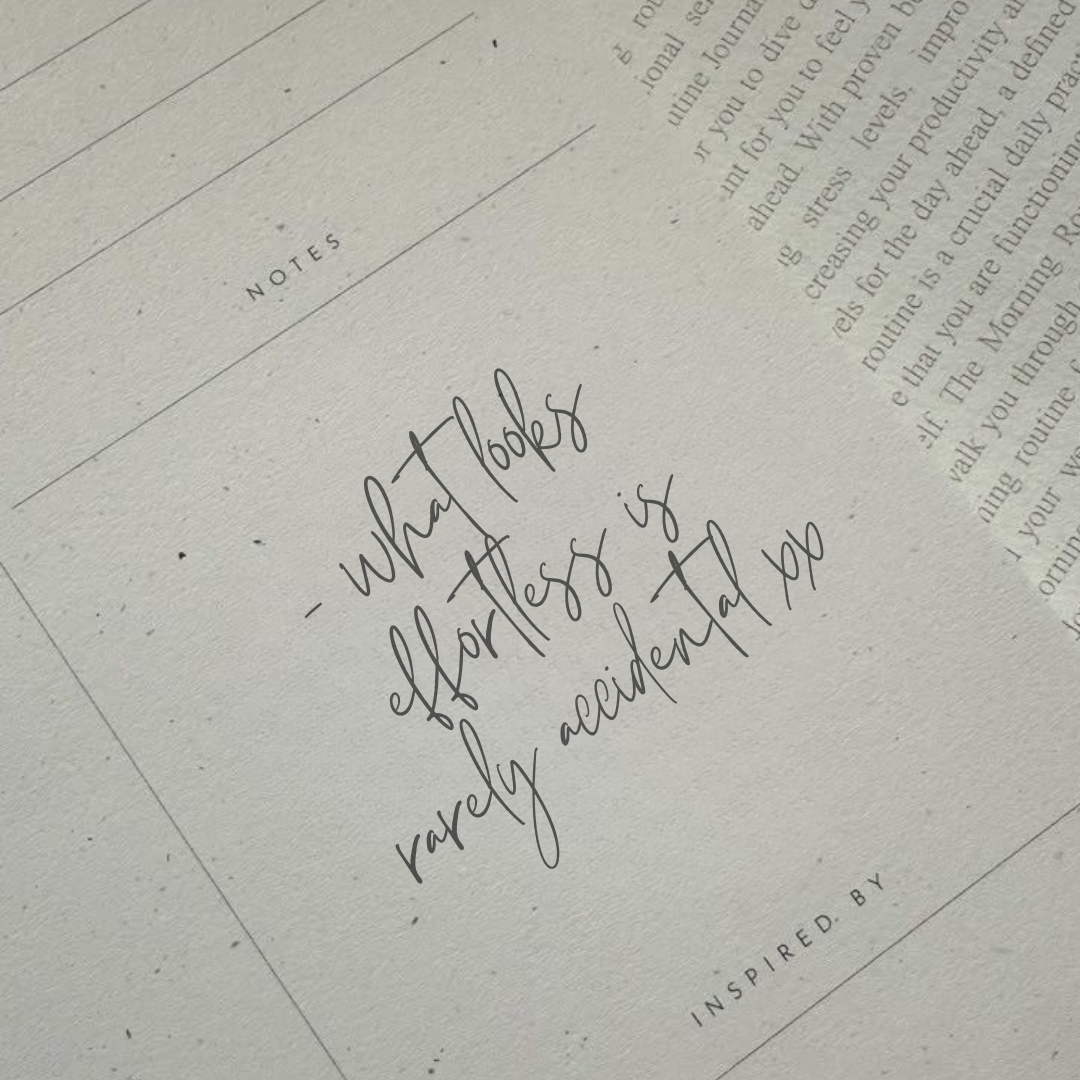 NOTES
- what looks
effortless is
rarely accidental xx
INSPIRED BY
g rou
ional se
utine Journa
or you to dive d
ant for you to feel y
ahead. With proven be
ng stress levels, impro
creasing your productivity a
vels for the day ahead, a defined
routine is a crucial daily prac
e that you are functioning
elf. The Morning Ro
walk you through
ning routine f
your we
orning